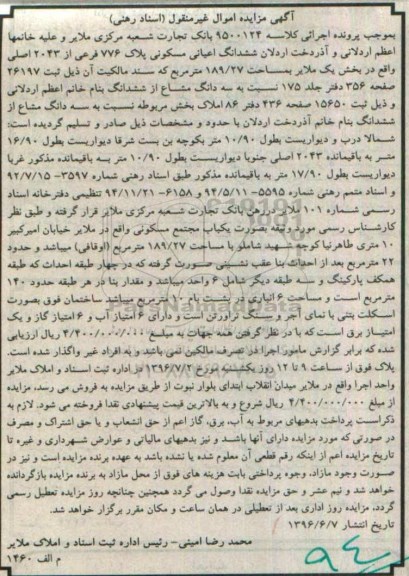 آگهی مزایده اموال غیرمنقول (اسناد رهنی)
بموجب پرونده اجرائی کلاسه ۹۵۰۰۱۲۴ بانک تجارت شعبه مرکزی ملایر و علیه خانمها
اعظم اردلانی و آذردخت اردلان ششدانگ اعیانی مسکونی پلاک ۷۷۶ فرعی از ۲۰۴۳ اصلی
واقع در بخش یک ملایر بمساحت ۱۸۹/۲۷ مترمربع که سند مالکیت آن ذیل ثبت ۲۶۱۹۷
صفحه ۳۵۶ دفتر جلد ۱۷۵ نسبت به سه دانگ مشاع از ششدانگ بنام خانم اعظم اردلانی
و ذیل ثبت ۱۵۶۵۰ صفحه ۲۳۶ دفتر ۸۶ املاک بخش مربوطه نسبت به سه دانگ مشاع از
ششدانگ بنام خانم آذردخت اردلان با حدود و مشخصات ذیل صادر و تسلیم گردیده است:
شمالا درب و دیواریست بطول ۱۰/۹۰ متر بکوچه بن بست شرقا دیواریست بطول ۱۶/۹۰
متر به باقیمانده ۲۰۴۳ اصلی جنوبا دیواریست بطول ۱۰/۹۰ متر به باقیمانده مذکور غربا
دیواریست بطول ۱۷/۹۰ متر به باقیمانده مذکور طبق اسناد رهنی شماره ۳۵۹۷- ۹۲/۷/۱۵
و اسناد متمم رهنی شماره ۵۵۹۵- ۹۴/۵/۱۱ و ۶۱۵۸- ۹۴/۱۱/۲۱ تنظیمی دفترخانه اسناد
رسمی شماره ۱۰۱ ملایر در رهن بانک تجارت شعبه مرکزی ملایر قرار گرفته و طبق نظر
کارشناس رسمی مورد وثیقه بصورت یکباب مجتمع مسکونی واقع در ملایر خیابان امیرکبیر
۱۰ متری طاهرنیا کوچه شهید شاملو با مساحت ۱۸۹/۲۷ مترمربع (اوقافی) میباشد و حدود
۲۲ مترمربع بعد از احداث بنا عقب نشینی صورت گرفته که در چهار طبقه احداث که طبقه
همکف پارکینگ و سه طبقه دیگر شامل ۶ واحد میباشد و مقدار بنا در هر طبقه حدود ۱۴۰
مترمربع است و مساحت ۶ انباری در پشت بام ۱۰۰ مترمربع میباشد ساختمان فوق بصورت
اسکلت بتنی با نمای آجر و سنگ تراورتن است و دارای ۶ امتیاز آب و ۶ امتیاز گاز و یک
امتیاز برق است که با در نظر گرفتن همه جهات به مبلغ ۴/۴۰۰/۰۰۰/۰۰۰ ریال ارزیابی
شده که برابر گزارش مامور اجرا در تصرف مالکین نمی باشد و به افراد غیر واگذار شده است.
پلاک فوق از ساعت ۹ تا ۱۲ روز یکشنبه مورخ ۱۳۹۶/۷/۲ در اداره ثبت اسناد و املاک ملایر
واحد اجرا واقع در ملایر میدان انقلاب ابتدای بلوار نبوت از طریق مزایده به فروش می رسد، مزایده
از مبلغ ۴/۴۰۰/۰۰۰/۰۰۰ ریال شروع و به بالاترین قیمت پیشنهادی نقدا فروخته می شود. لازم به
ذکراست پرداخت بدهیهای مربوط به آب، برق، گاز اعم از حق انشعاب و یا حق اشتراک و مصرف
در صورتی که مورد مزایده دارای آنها باشد و نیز بدهیهای مالیاتی و عوارض شهرداری و غیره تا
تاریخ مزایده اعم از اینکه رقم قطعی آن معلوم شده یا نشده باشد به عهده برنده مزایده است و نیز در
صورت وجود مازاد، وجوه پرداختی بابت هزینه های فوق از محل مازاد به برنده مزایده بازگردانده
خواهد شد و نیم عشر و حق مزایده نقدا وصول می گردد همچنین چنانچه روز مزایده تعطیل رسمی
گردد، مزایده روز اداری بعد از تعطیلی در همان ساعت و مکان مقرر برگزار خواهد شد.
تاریخ انتشار ۱۳۹۶/۶/۷
محمد رضا امینی- رئیس اداره ثبت اسناد و املاک ملایر
م الف ۱۴۶۰